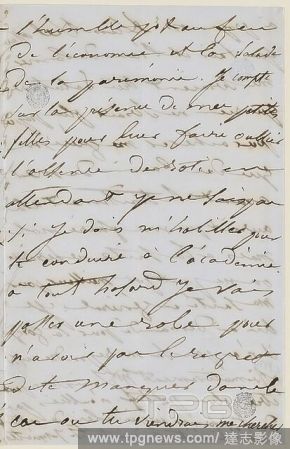 l'humble pot au feu
de l'économie et la salade
de la parcimonie. Je compte
sur la présence de mes petites
filles pour leur faire oublier
l'absence de
attendant je ne sais pas
si je dois m'habiller pour
te conduire à l'académie
à tout hasard je vais
passer une robe pour
n'avoir pas le regret
de te manquer dans le
cas où tu viendrais me chercher
TPG
www.tpgnews.com / 達志影像